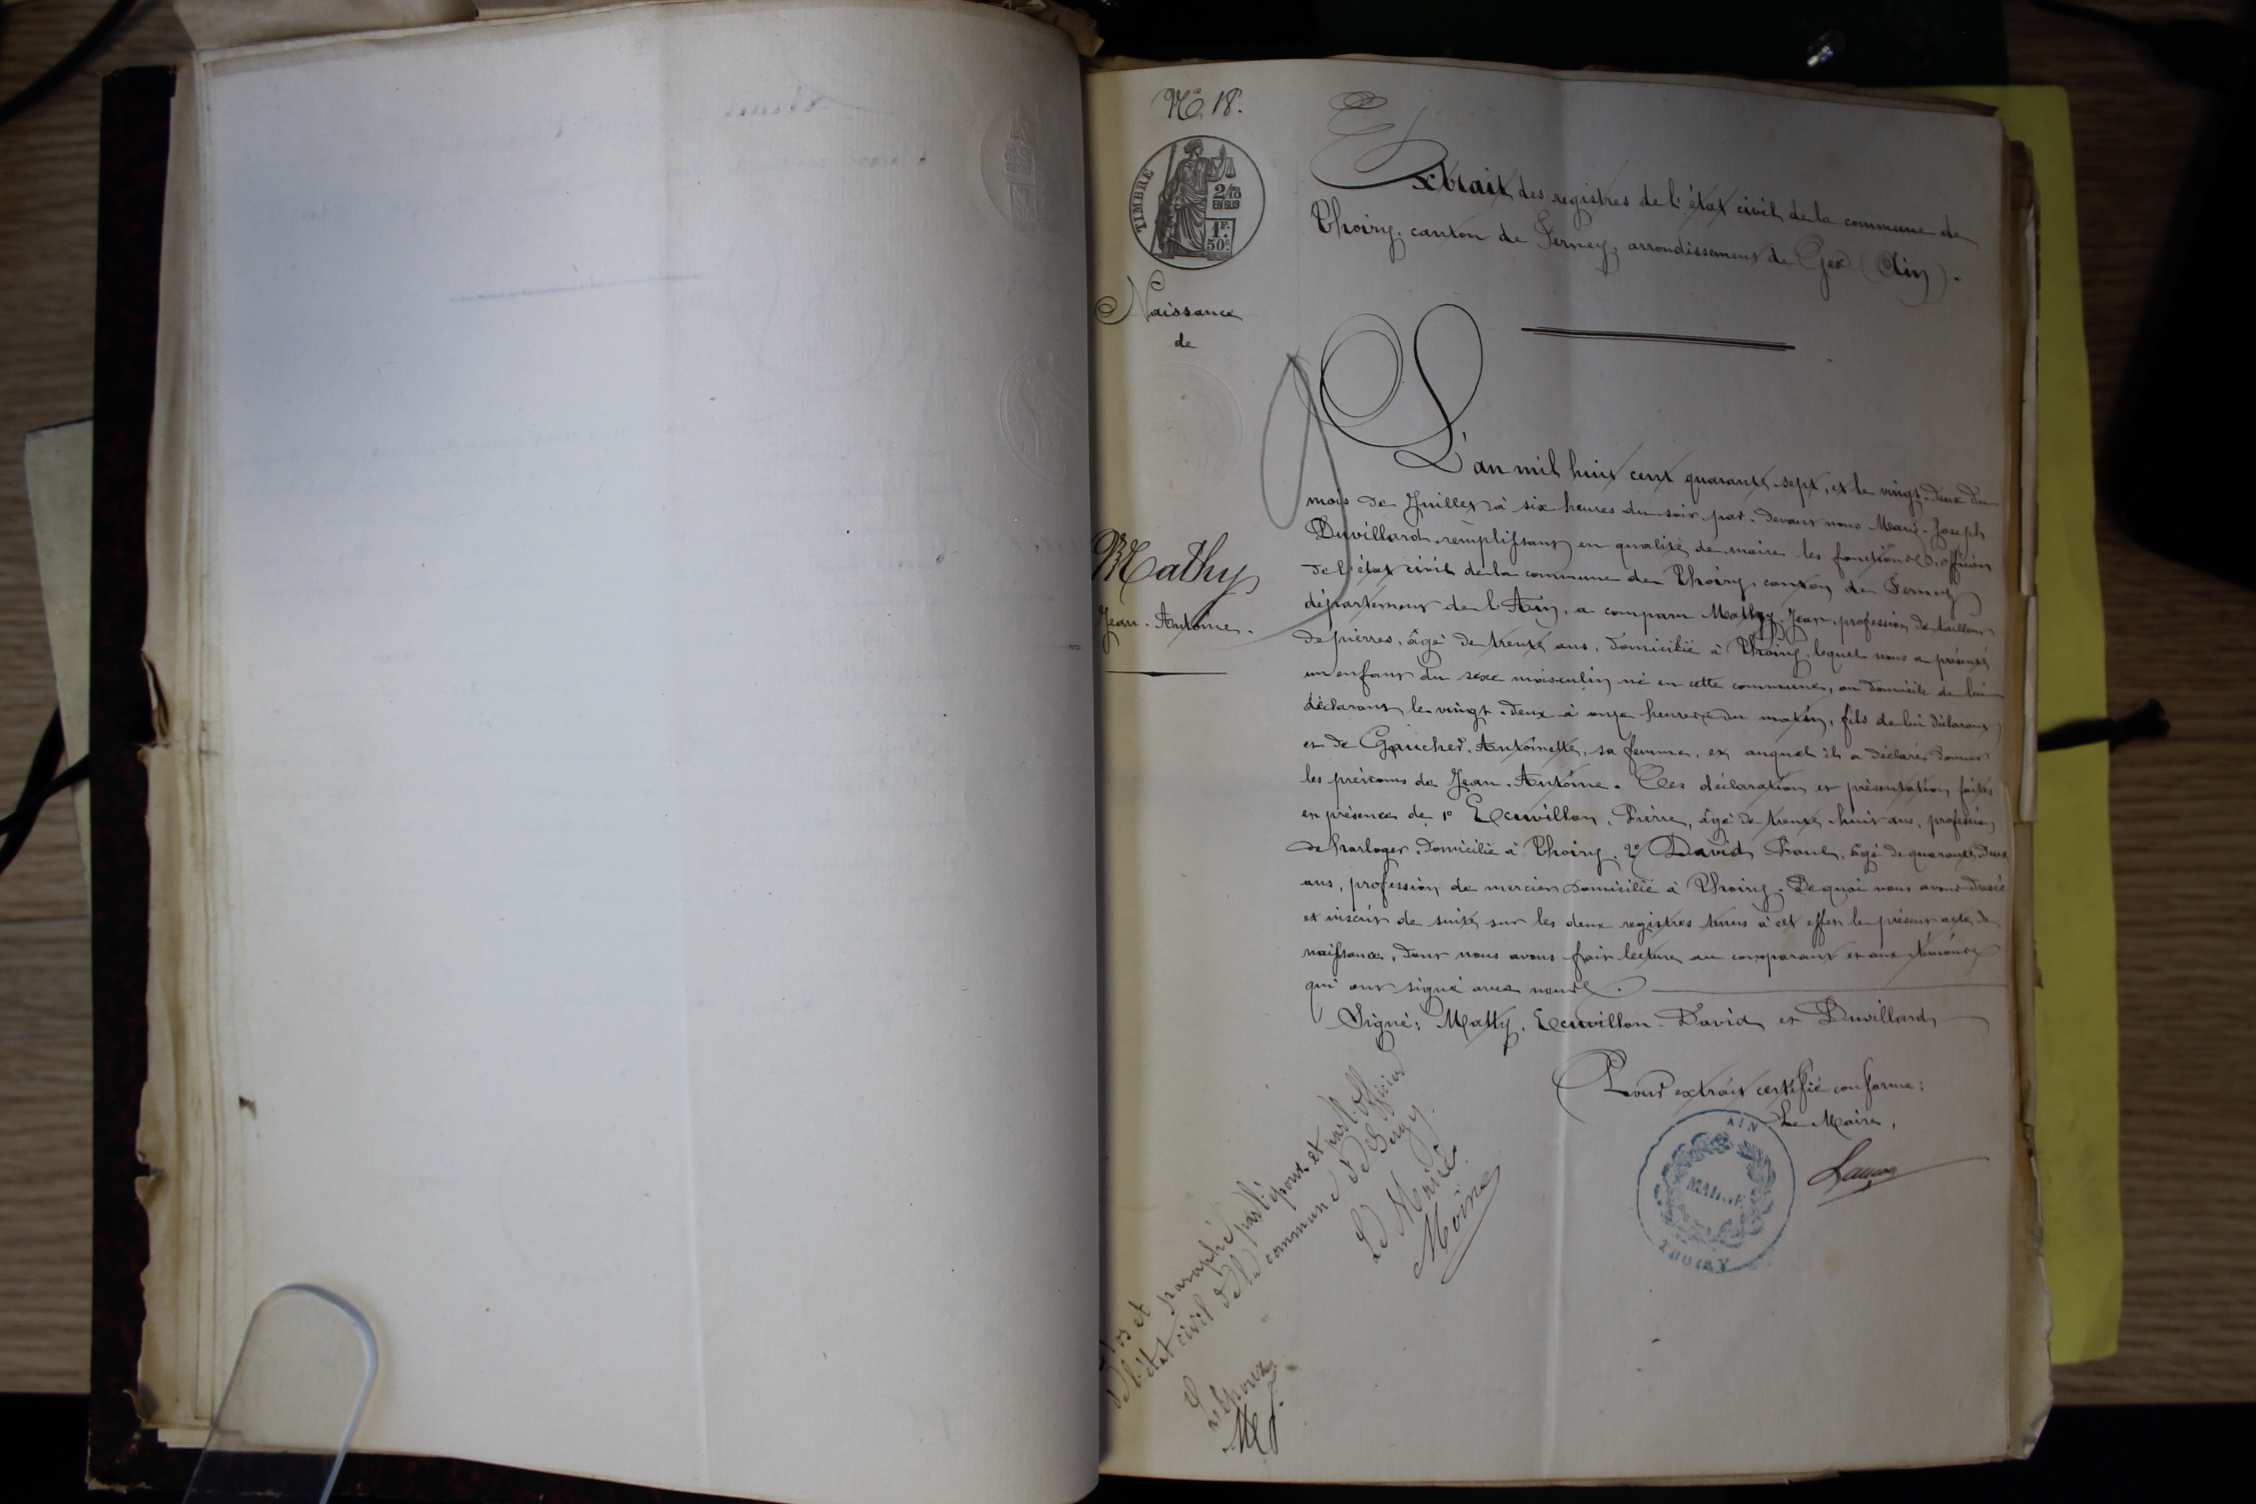 No 18.
TIMBRE
2/10
EN SUS
1F.
50c
Extrait des registres de l'état civil de la commune de
Thoiry, canton de Ferney, arrondissement de Gex (Ain).
Naissance
de
Mathy
Jean-Antoine.
L'an mil huit cent quarante-sept, et le vingt-deux du
mois de Juillet à six heures du soir, par-devant nous Marie-Joseph
Duvillard remplissant en qualité de maire les fonctions d'officier
de l'état civil de la commune de Thoiry, canton de Ferney
département de l'Ain, a comparu Mathy, Jean, profession de tailleur
de pierres, âgé de trente ans, domicilié à Thoiry, lequel nous a présenté
un enfant du sexe masculin né en cette commune, au domicile de lui
déclarant le vingt-deux à onze heures du matin, fils de lui déclarant
et de Gaucher, Antoinette, sa femme, et auquel il a déclaré donner
les prénoms de Jean-Antoine. Ces déclaration et présentation faites
en présence de 1o Ecuvillon, Pierre, âgé de trente-huit ans, profession
de horloger, domicilié à Thoiry. 2o David âgé de quarante-deux
ans, profession de mercier domicilié à Thoiry. De quoi nous avons dressé
et inscrit de suite sur les deux registres tenus à cet effet le présent acte de
naissance, dont nous avons fait lecture au comparant et aux témoins
qui ont signé avec nous.
Signé: Mathy, Ecuvillon, David et Duvillard
Pour extrait certifié conforme:
Le Maire,
AIN
MAIRIE
THOIRY
et paraphé par l'époux et par l'officier
de l'état civil de la commune de Sergy.
Le Maire
Moine
L'époux
M J.